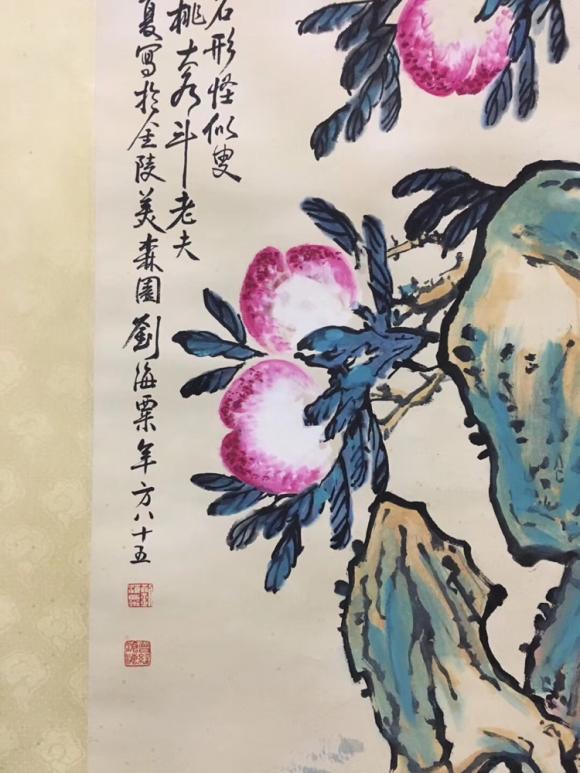 石形怪似叟
桃大如斗老夫
夏写於金陵美森園劉海粟年方八十五